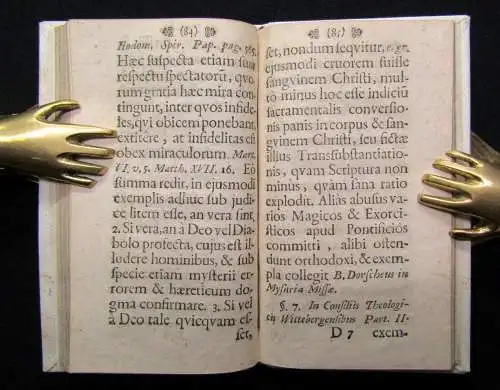 (84)
Hodom. Spër. Pap. pag. 365.
Hæc suspecta etiam sunt
respectu spectatorū, quo-
rum gratia hæc mira con-
tingunt, inter qvos infide-
les, qvi obicem ponebant,
extitêre, at infidelitas est
obex miraculorum. Marc.
VI, v, 5. Matth. XVII. 16. Eò
summa redit, in ejusmodi
exemplis adhuc sub judi-
ce litem esse, an vera sint.
2. Si vera, an à Deo vel Dia-
bolo profecta, cujus est il-
ludere hominibus, & sub
specie etiam mysterii er-
rorem & hæreticum do-
gma confirmare. 3. Si vel
à Deo tale qvicqvam es-
set,
(85)
set, nondum seqvitur, e. gr.
ejusmodi cruorem fuisse
sangvinem Christi, mul-
tò minus hoc esse indiciū
sacramentalis conversio-
nis panis in corpus & san-
gvinem Christi, seu fictæ
illius Transsubstantiatio-
nis, quam Scriptura non
minus, qvàm sana ratio
explodit. Aliàs abusus va-
rios Magicos & Exorci-
sticos apud Pontificiòs
committi, alibi osten-
dunt orthodoxi, & exem-
pla collegit B. Dorscheus in
Mysuria Missæ.
§. 7. In Consiliis Theologi-
cis Wittebergensibus Part. II-
D 7 exem-